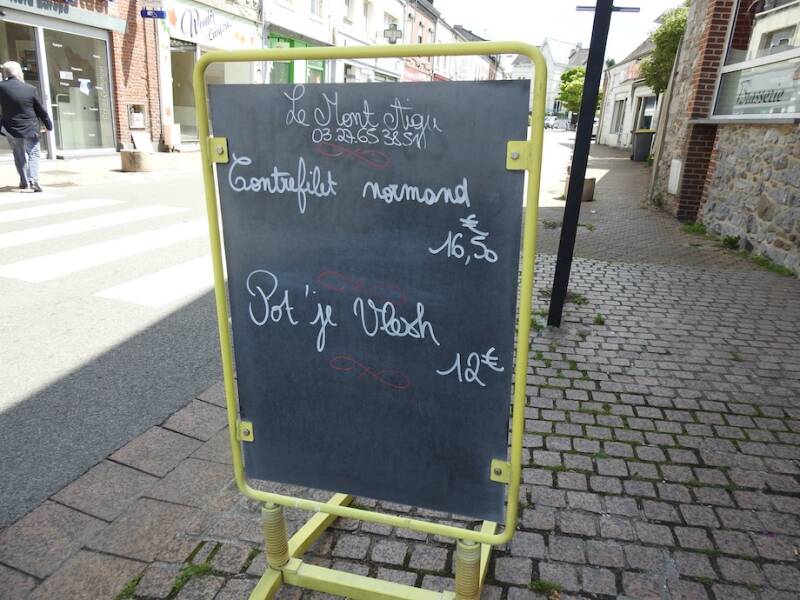 Le Mont Aigu
03.27.65.38.51
Contrefilet normand
16,50 €
Pot'je Vlesh
12€
Brasserie